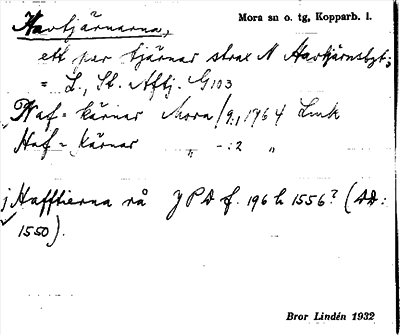 Havtjärnarna, Mora sn o. tg, Kopparb. l.
ett par tjärnar strax N Havtjärnsbgt;
= L., Sk. Aftj. G103
Haf-kärnar Mora /9:1 1764 Lmk
Haf-kärnar „ -:2 „
j Hafftierna rå JPD f. 196 h 1556? (DD:
1550).
Bror Lindén 1932